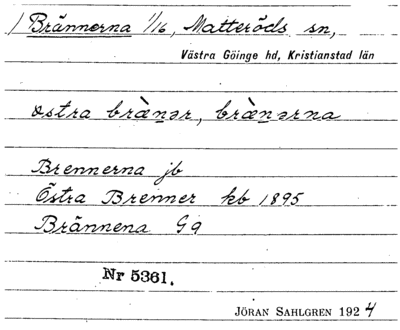 ) Brännerna 1/16, Matteröds sn,
Västra Göinge hd, Kristianstad län
östra bràn̲ər, bràn̲ərna
Brennerna jb
Östra Brenner kb 1895
Brännena Gg
Nr 5361.
JÖRAN SAHLGREN 1924